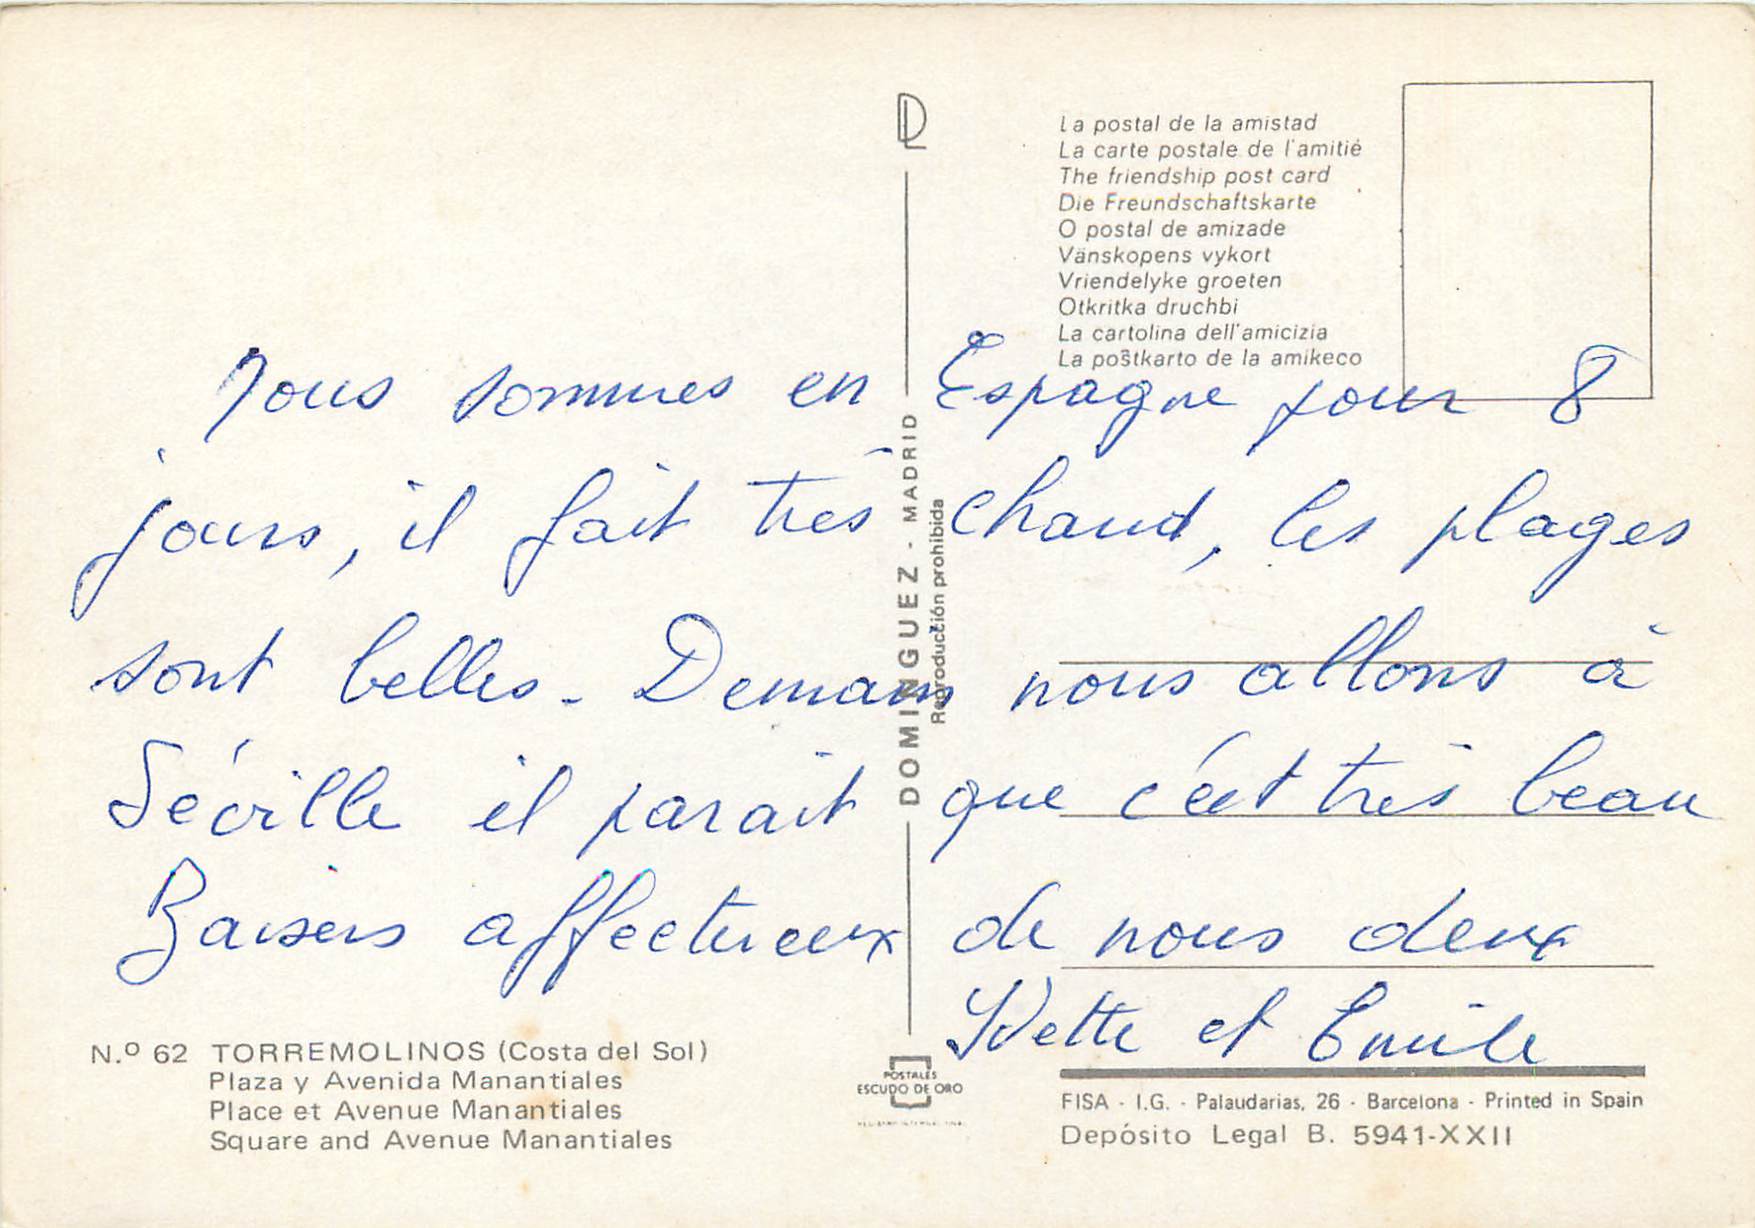 La postal de la amistad
La carte postale de l'amitié
The friendship post card
Die Freundschaftskarte
O postal de amizade
Vänskopens vykort
Vriendelyke groeten
Otkritka druchbi
La cartolina dell'amicizia
La poŝtkarto de la amikeco
Nous sommes en Espagne pour 8
jours, il fait très chaud, les plages
sont belles - Demain nous allons à
Séville il parait que c'est très beau
Baisers affectueux de nous deux
Yvette et Emile
DOMINGUEZ - MADRID
Reproducción prohibida
N.º 62 TORREMOLINOS (Costa del Sol)
Plaza y Avenida Manantiales
Place et Avenue Manantiales
Square and Avenue Manantiales
POSTALES
ESCUDO DE ORO
FISA - I.G. - Palaudarias, 26 - Barcelona - Printed in Spain
Depósito Legal B. 5941-XXII